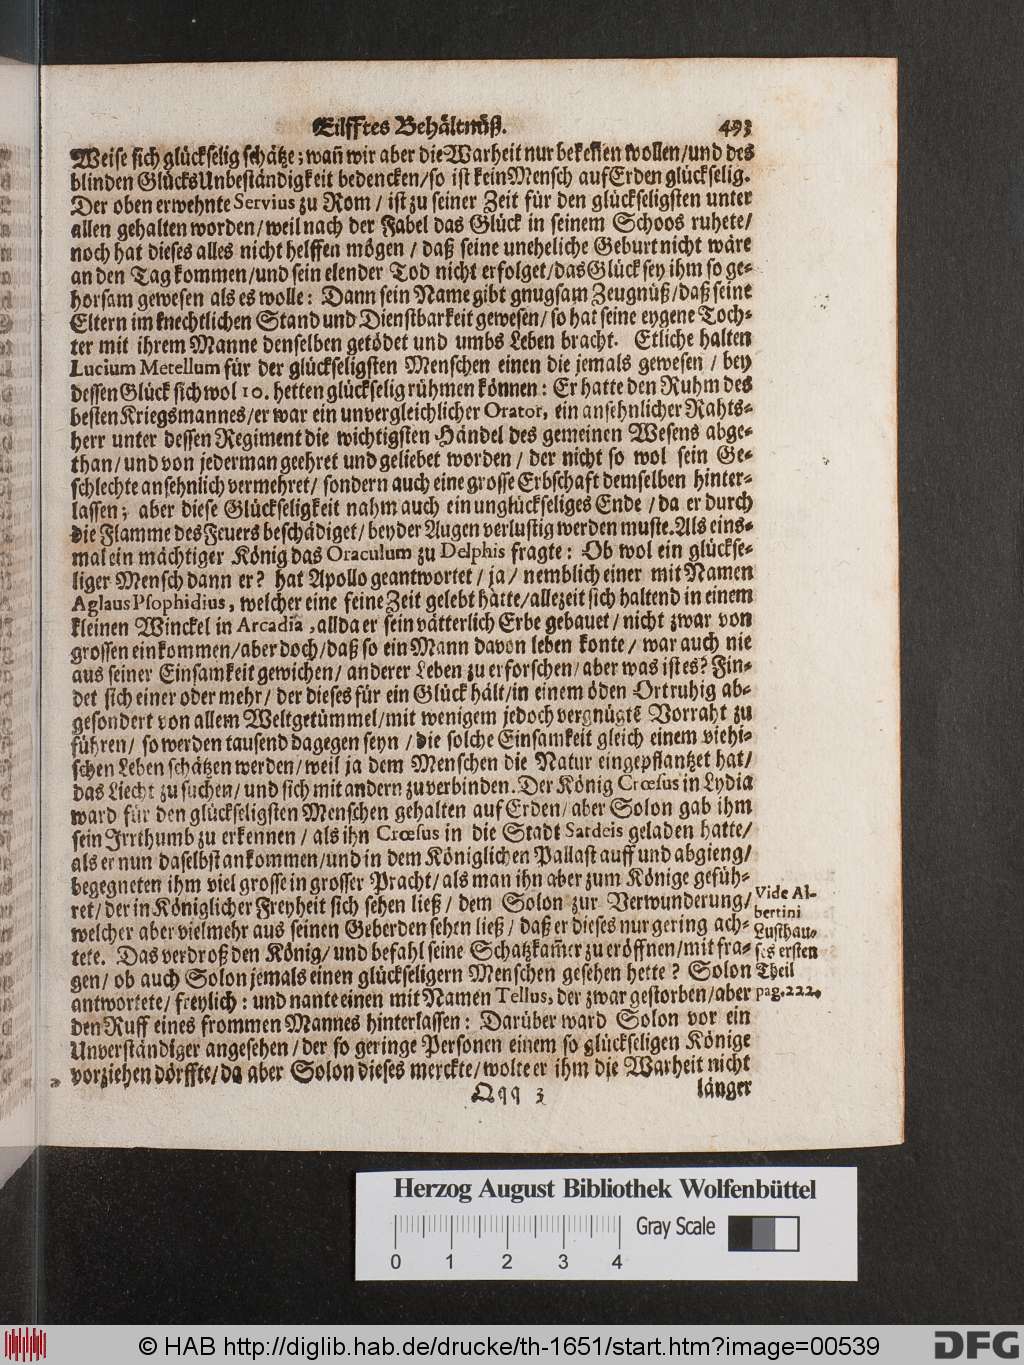 Eilfftes Behältnüß. 493
Weise sich glückselig schätze; wañ wir aber die Warheit nur bekeñen wollen/und des
blinden Glücks Unbeständigkeit bedencken/so ist kein Mensch auf Erden glückselig.
Der oben erwehnte Servius zu Rom / ist zu seiner Zeit für den glückseligsten unter
allen gehalten worden/weil nach der Fabel das Glück in seinem Schoos ruhete/
noch hat dieses alles nicht helffen mögen / daß seine uneheliche Geburt nicht wäre
an den Tag kommen/und sein elender Tod nicht erfolget/das Glück sey ihm so ge-
horsam gewesen als es wolle: Dann sein Name gibt gnugsam Zeugnüß/daß seine
Eltern im knechtlichen Stand und Dienstbarkeit gewesen/so hat seine eygene Toch-
ter mit ihrem Manne denselben getödet und umbs Leben bracht. Etliche halten
Lucium Metellum für der glückseligsten Menschen einen die jemals gewesen / bey
dessen Glück sich wol 10. hetten glückselig rühmen können: Er hatte den Ruhm des
besten Kriegsmannes/er war ein unvergleichlicher Orator, ein ansehnlicher Rahts-
herr unter dessen Regiment die wichtigsten Händel des gemeinen Wesens abge-
than/und von jederman geehret und geliebet worden / der nicht so wol sein Ge-
schlechte ansehnlich vermehret/ sondern auch eine grosse Erbschaft demselben hinter-
lassen; aber diese Glückseligkeit nahm auch ein unglückseliges Ende / da er durch
die Flamme des Feuers beschädiget/beyder Augen verlustig werden muste. Als eins-
mal ein mächtiger König das Oraculum zu Delphis fragte: Ob wol ein glückse-
liger Mensch dann er? hat Apollo geantwortet / ja/ nemblich einer mit Namen
Aglaus Psophidius, welcher eine feine Zeit gelebt hätte/allezeit sich haltend in einem
kleinen Winckel in Arcadia, allda er sein vätterlich Erbe gebauet/ nicht zwar von
grossen einkommen/aber doch/daß so ein Mann davon leben konte/ war auch nie
aus seiner Einsamkeit gewichen/ anderer Leben zu erforschen/aber was ist es? Fin-
det sich einer oder mehr/ der dieses für ein Glück hält/in einem öden Ort ruhig ab-
gesondert von allem Weltgetümmel/mit wenigem jedoch vergnügtē Vorraht zu
führen/ so werden tausend dagegen seyn / die solche Einsamkeit gleich einem viehi-
schen Leben schätzen werden/weil ja dem Menschen die Natur eingepflantzet hat/
das Liecht zu suchen/und sich mit andern zu verbinden. Der König Crœsus in Lydia
ward für den glückseligsten Menschen gehalten auf Erden/aber Solon gab ihm
sein Irrthumb zu erkennen / als ihn Crœsus in die Stadt Sardeis geladen hatte/
als er nun daselbst ankommen/und in dem Königlichen Pallast auff und abgieng/
begegneten ihm viel grosse in grosser Pracht/als man ihn aber zum Könige gefüh-
ret/der in Königlicher Freyheit sich sehen ließ/ dem Solon zur Verwunderung/
welcher aber vielmehr aus seinen Geberden sehen ließ/ daß er dieses nur gering ach-
tete. Das verdroß den König/und befahl seine Schatzkam̃er zu eröffnen/mit fra-
gen/ ob auch Solon jemals einen glückseligern Menschen gesehen hette? Solon
antwortete/ freylich: und nante einen mit Namen Tellus, der zwar gestorben/aber
den Ruff eines frommen Mannes hinterlassen: Darüber ward Solon vor ein
Unverständiger angesehen/der so geringe Personen einem so glückseligen Könige
vorziehen dörffte/da aber Solon dieses merckte/wolte er ihm die Warheit nicht
Qqq 3 länger
Vide Al-
bertini
Lusthau-
ses ersten
Theil
pag. 222.
Herzog August Bibliothek Wolfenbüttel
Gray Scale
0 1 2 3 4
© HAB http://diglib.hab.de/drucke/th-1651/start.htm?image=00539
DFG